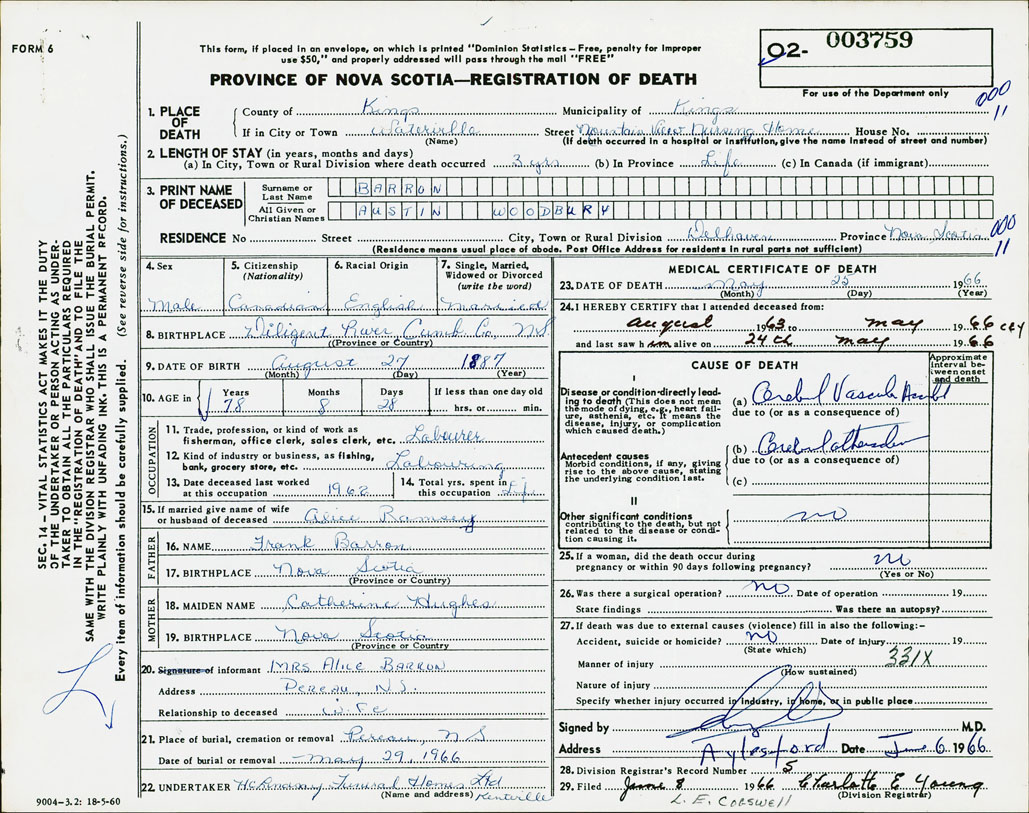 FORM 6
This form, if placed in an envelope, on which is printed "Dominion Statistics – Free, penalty for improper
use $50," and properly addressed will pass through the mail "FREE"
PROVINCE OF NOVA SCOTIA—REGISTRATION OF DEATH
02- 003759
For use of the Department only
000
11
1. PLACE OF DEATH
County of Kings Municipality of Kings
If in City or Town Waterville Street Mountain View Nursing Home House No.
(Name) (If death occurred in a hospital or institution, give the name instead of street and number)
2. LENGTH OF STAY (in years, months and days)
(a) In City, Town or Rural Division where death occurred 3 yrs (b) In Province Life (c) In Canada (if immigrant)
3. PRINT NAME OF DECEASED
Surname or Last Name BARRON
All Given or Christian Names AUSTIN WOODBURY
RESIDENCE No Street City, Town or Rural Division Delhaven Province Nova Scotia
(Residence means usual place of abode. Post Office Address for residents in rural parts not sufficient)
000
11
4. Sex
Male
5. Citizenship
(Nationality)
Canadian
6. Racial Origin
English
7. Single, Married, Widowed or Divorced
(write the word)
Married
8. BIRTHPLACE Diligent River Cumb Co, NS
(Province or Country)
9. DATE OF BIRTH August 27 1887
(Month) (Day) (Year)
10. AGE in
Years
78
Months
8
Days
28
If less than one day old
hrs. or min.
OCCUPATION
11. Trade, profession, or kind of work as
fisherman, office clerk, sales clerk, etc. Labourer
12. Kind of industry or business, as fishing,
bank, grocery store, etc. Labouring
13. Date deceased last worked
at this occupation 1962
14. Total yrs. spent in
this occupation Life
15. If married give name of wife
or husband of deceased Alice Ramsey
FATHER
16. NAME Frank Barron
17. BIRTHPLACE Nova Scotia
(Province or Country)
MOTHER
18. MAIDEN NAME Catherine Hughes
19. BIRTHPLACE Nova Scotia
(Province or Country)
20. Signature of informant MRS ALICE BARRON
Address Pereau, N.S.
Relationship to deceased wife
21. Place of burial, cremation or removal Pereau, N S
Date of burial or removal May 29, 1966
22. UNDERTAKER Funeral Homes Ltd
(Name and address) Kentville
9004-3.2: 18-5-60
MEDICAL CERTIFICATE OF DEATH
23. DATE OF DEATH May 25 1966
(Month) (Day) (Year)
24. I HEREBY CERTIFY that I attended deceased from:
August 1963 to May 1966 CEY
and last saw him alive on 24th May 1966
CAUSE OF DEATH
Approximate interval between onset and death
I
Disease or condition directly leading to death (This does not mean the mode of dying, e.g., heart failure, asthenia, etc. It means the disease, injury, or complication which caused death.)
(a) Cerebral Vascular
due to (or as a consequence of)
Antecedent causes
Morbid conditions, if any, giving rise to the above cause, stating the underlying condition last.
(b) Cerebral
due to (or as a consequence of)
(c)
II
Other significant conditions
contributing to the death, but not related to the disease or condition causing it.
no
25. If a woman, did the death occur during
pregnancy or within 90 days following pregnancy? no
(Yes or No)
26. Was there a surgical operation? no Date of operation 19
State findings Was there an autopsy?
27. If death was due to external causes (violence) fill in also the following:–
Accident, suicide or homicide? no Date of injury 19
(State which)
Manner of injury 331X
(How sustained)
Nature of injury
Specify whether injury occurred in industry, in home, or in public place
Signed by M.D.
Address Aylesford Date June 6 1966
28. Division Registrar's Record Number 5
29. Filed June 8 1966 Charlotte E Young
(Division Registrar)
L. E. COGSWELL
SEC. 14 – VITAL STATISTICS ACT MAKES IT THE DUTY
OF THE UNDERTAKER OR PERSON ACTING AS UNDER-
TAKER TO OBTAIN ALL THE PARTICULARS REQUIRED
IN THE "REGISTRATION OF DEATH" AND TO FILE THE
SAME WITH THE DIVISION REGISTRAR WHO SHALL ISSUE THE BURIAL PERMIT.
WRITE PLAINLY WITH UNFADING INK. THIS IS A PERMANENT RECORD.
Every item of information should be carefully supplied. (See reverse side for instructions.)